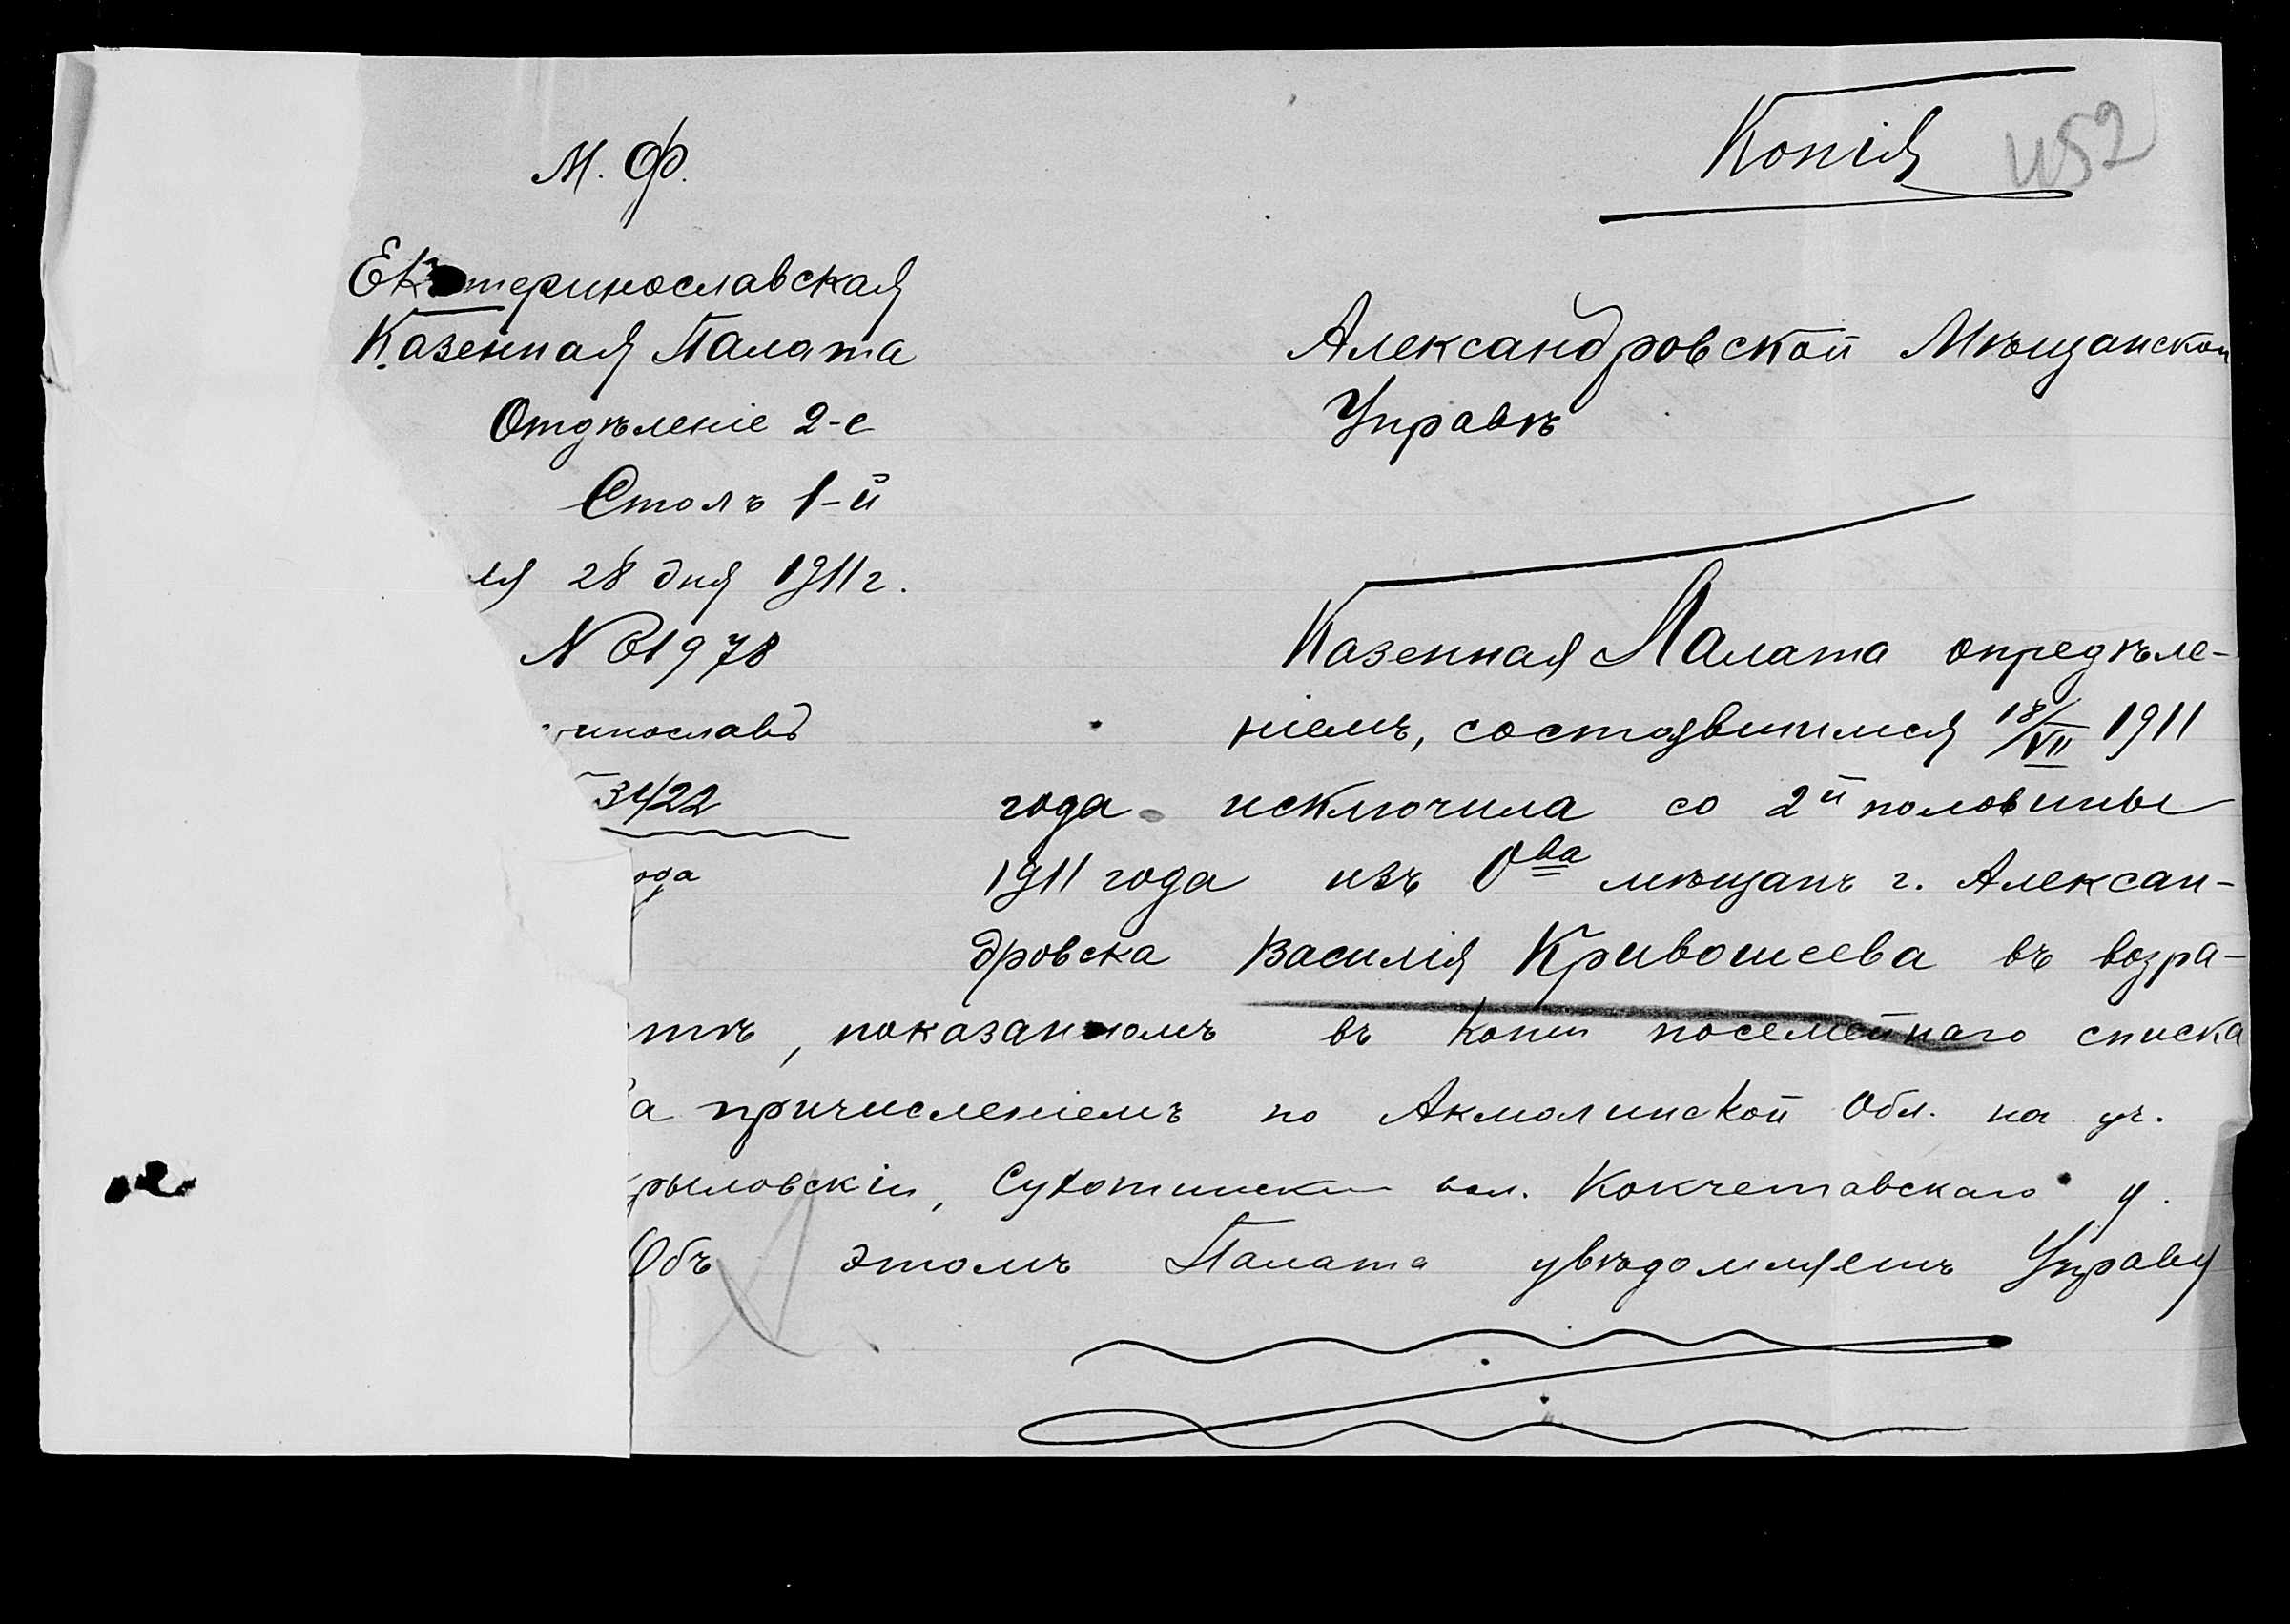 Копія 452
М. Ф.
Екатеринославская
Казенная Палата
Отдѣленіе 2-е
Столъ 1-й
ля 28 дня 1911 г.
№ 61978
инославъ
3422
ода
Александровской Мѣщанской
Управѣ
Казенная Палата опредѣле-
ніемъ, состоявшимся 18/VII 1911
года исключила со 2й половины
1911 года изъ Ова мѣщанъ г. Алексан-
дровска Василія Кривошеева въ возра-
стѣ, показанномъ въ копіи посемейнаго списка
за причисленіемъ по Акмолинской Обл. на уч.
рыловскій, Сухотинской вол. Кокчетавскаго у.
Объ этомъ Палата увѣдомляетъ Управу